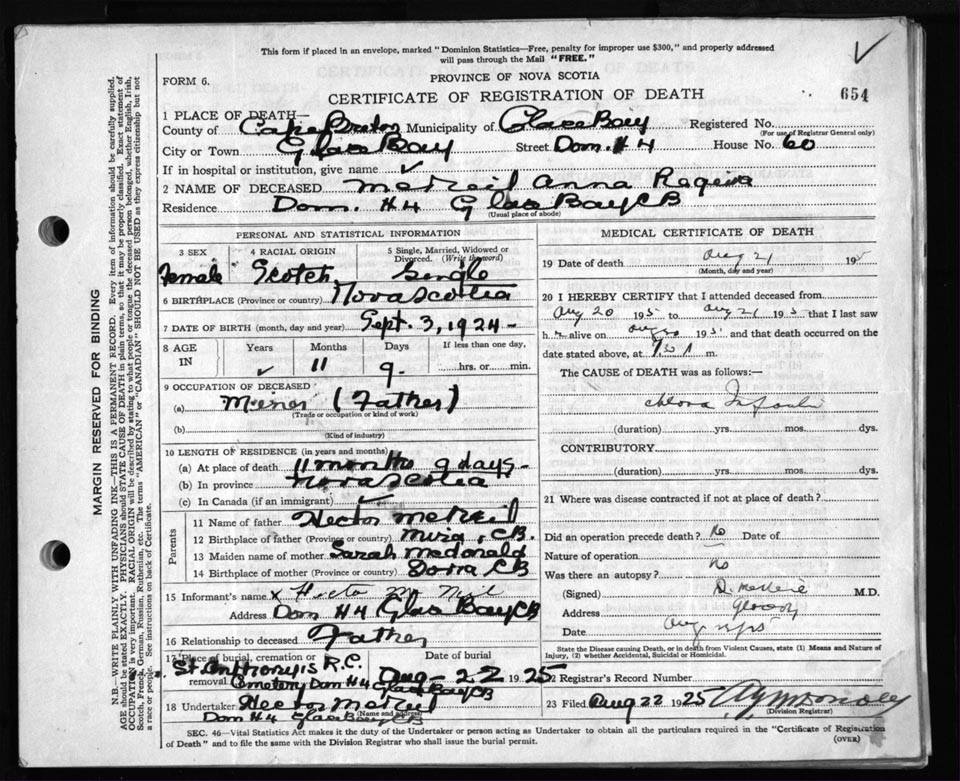 This form if placed in an envelope, marked "Dominion Statistics—Free, penalty for improper use $300," and properly addressed
will pass through the Mail "FREE."
FORM 6.
PROVINCE OF NOVA SCOTIA
CERTIFICATE OF REGISTRATION OF DEATH
654
1 PLACE OF DEATH—
County of Cape Breton Municipality of Glace Bay Registered No.
(For use of Registrar General only)
City or Town Glace Bay Street Dom. #4 House No. 60
If in hospital or institution, give name ✓
2 NAME OF DECEASED McNeil Anna Regina
Residence Dom. #4 Glace Bay CB
(Usual place of abode)
PERSONAL AND STATISTICAL INFORMATION
3 SEX 4 RACIAL ORIGIN 5 Single, Married, Widowed or Divorced. (Write the word)
Female Scotch Single
6 BIRTHPLACE (Province or country) Nova Scotia
7 DATE OF BIRTH (month, day and year) Sept. 3, 1924-
8 AGE IN Years Months Days If less than one day,
✓ 11 9. hrs. or min.
9 OCCUPATION OF DECEASED
(a) Miner (Father)
(Trade or occupation or kind of work)
(b)
(Kind of industry)
10 LENGTH OF RESIDENCE (in years and months)
(a) At place of death 11 months 9 days-
(b) In province Nova Scotia
(c) In Canada (if an immigrant) ✓
Parents
11 Name of father Hector McNeil
12 Birthplace of father (Province or country) Mira, CB.
13 Maiden name of mother Sarah McDonald
14 Birthplace of mother (Province or country) CB
15 Informant's name x Hector Mc Neil
Address Dom #4 Glace Bay CB
16 Relationship to deceased Father
17 Place of burial, cremation or removal Date of burial
St. Anthonys R.C. Cemetery Dom #4 Glace Bay CB Aug- 22 1925
18 Undertaker Hector McNeil
(Name and address)
Dom #4 Glace Bay CB
MEDICAL CERTIFICATE OF DEATH
19 Date of death Aug 21 192
(Month, day and year)
20 I HEREBY CERTIFY that I attended deceased from
Aug 20 19 to Aug 21 19 that I last saw
h alive on Aug 19 and that death occurred on the
date stated above, at m.
The CAUSE of DEATH was as follows:—
(duration) yrs. mos. dys.
CONTRIBUTORY
(duration) yrs. mos. dys.
21 Where was disease contracted if not at place of death?
Did an operation precede death? No Date of
Nature of operation
Was there an autopsy? No
(Signed) M.D.
Address
Date Aug
State the Disease causing Death, or in death from Violent Causes, state (1) Means and Nature of
Injury, (2) whether Accidental, Suicidal or Homicidal.
22 Registrar's Record Number
23 Filed Aug 22 1925
(Division Registrar)
SEC. 46—Vital Statistics Act makes it the duty of the Undertaker or person acting as Undertaker to obtain all the particulars required in the "Certificate of Registration
of Death" and to file the same with the Division Registrar who shall issue the burial permit.
(OVER)
MARGIN RESERVED FOR BINDING
N.B.—WRITE PLAINLY WITH UNFADING INK—THIS IS A PERMANENT RECORD. Every item of information should be carefully supplied.
AGE should be stated EXACTLY. PHYSICIANS should STATE CAUSE OF DEATH in plain terms, so that it may be properly classified. Exact statement of
OCCUPATION is very important. RACIAL ORIGIN will be described by stating to what people or tongue the deceased person belonged, whether English, Irish,
Scotch, French, German, Russian, Ruthenian, etc. The terms "AMERICAN" or "CANADIAN" SHOULD NOT BE USED as they express citizenship but not
a race or people. See instructions on back of Certificate.